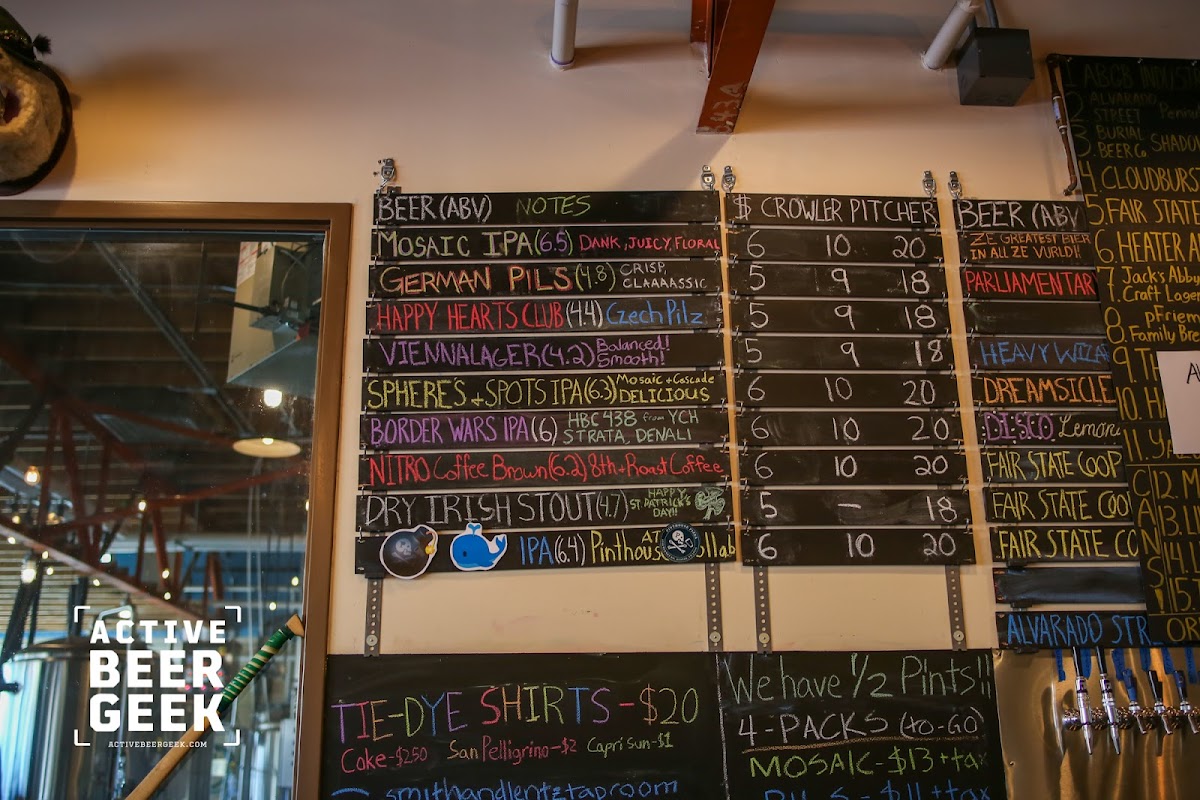 BEER (ABV) NOTES $ CROWLER PITCHER
MOSAIC IPA (6.5) DANK, JUICY, FLORAL 6 10 20
GERMAN PILS (4.8) CRISP, CLAAAASSIC 5 9 18
HAPPY HEARTS CLUB (4.4) Czech Pilz 5 9 18
VIENNA LAGER (4.2) Balanced! Smooth! 5 9 18
SPHERES + SPOTS IPA (6.3) Mosaic + Cascade DELICIOUS 6 10 20
BORDER WARS IPA (6) HBC 438 from YCH STRATA, DENALI 6 10 20
NITRO Coffee Brown (6.2) 8th + Roast Coffee 6 10 20
DRY IRISH STOUT (4.7) HAPPY ST. PATRICK'S DAY!! 5 – 18
IPA (6.4) AT Pinthouse Collab 6 10 20
BEER (ABV
ZE GREATEST BIER
IN ALL ZE VURLD!!
PARLIAMENTAR
HEAVY
DREAMSICLE
DISCO Lemon
FAIR STATE COOP
FAIR STATE COO
FAIR STATE CO
ALVARADO STR
1 ABGB
2 ALVARADO STREET
3. BURIAL BEER CO SHADOW
4 CLOUDBURS
5 FAIR STATE
6. HEATER A
7. Jack's Abby Craft Lager
8. pFriem Family Bre
9. T
10. H
11. YA
CANS!
12. M
13. H
14. L
15
OR
TIE-DYE SHIRTS - $20
Coke-$2.50 San Pellegrino-$2 Capri Sun-$1
smithandlentztaproom
We have 1/2 Pints!!
4-PACKS (to-GO)
MOSAIC - $13 + tax
PILS - $11 + tax
ACTIVE
BEER
GEEK
ACTIVEBEERGEEK.COM